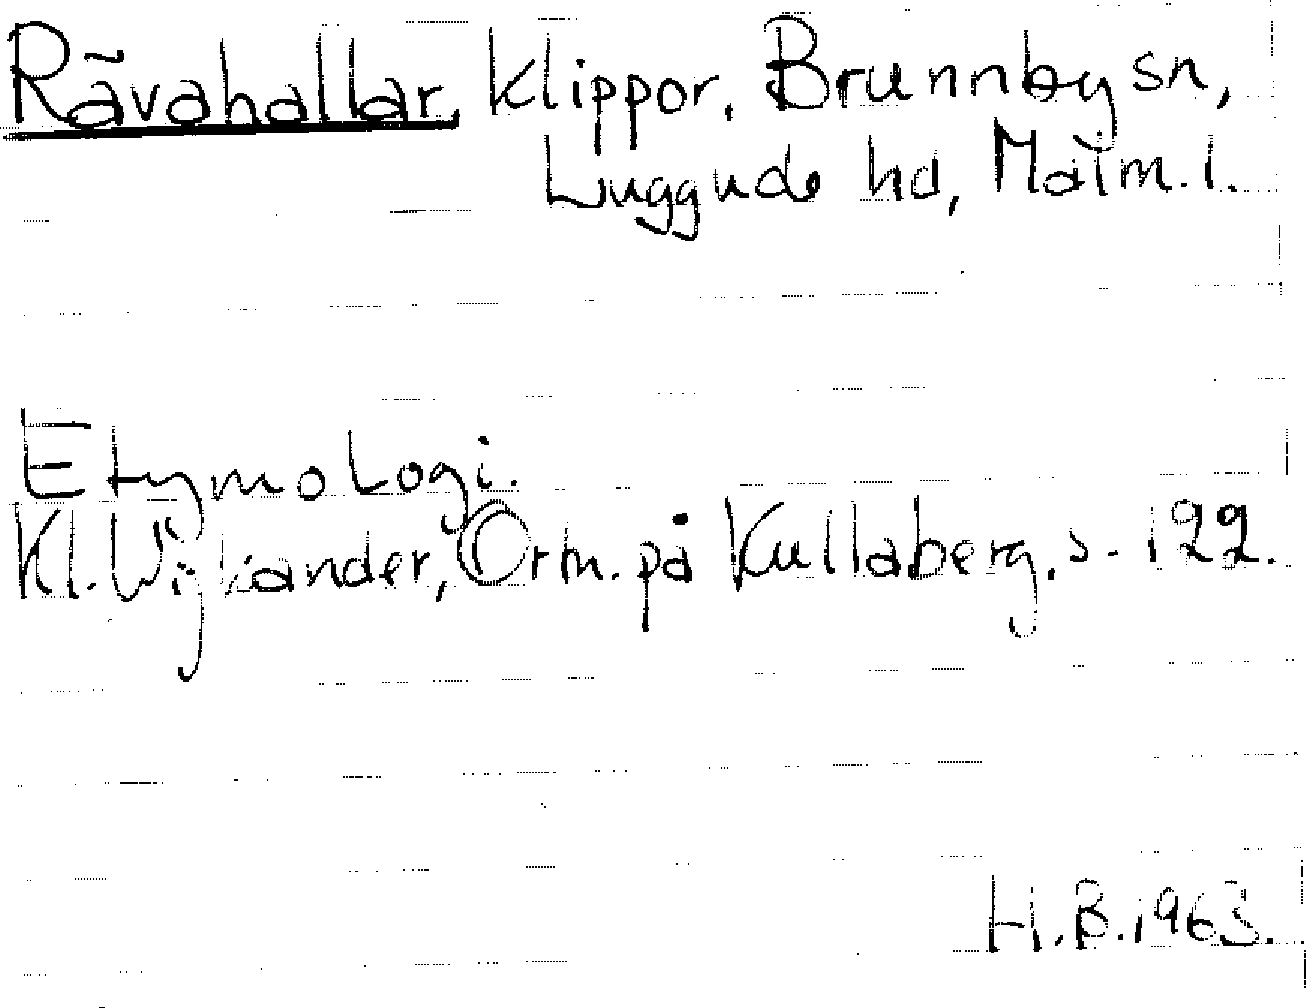 Rävahallar, klippor. Brunnby sn,
Luggude hd, Malm. l.
Etymologi.
Kl. Wijkander, Ortn. på Kullaberg, s. 122.
H.B. 1963.